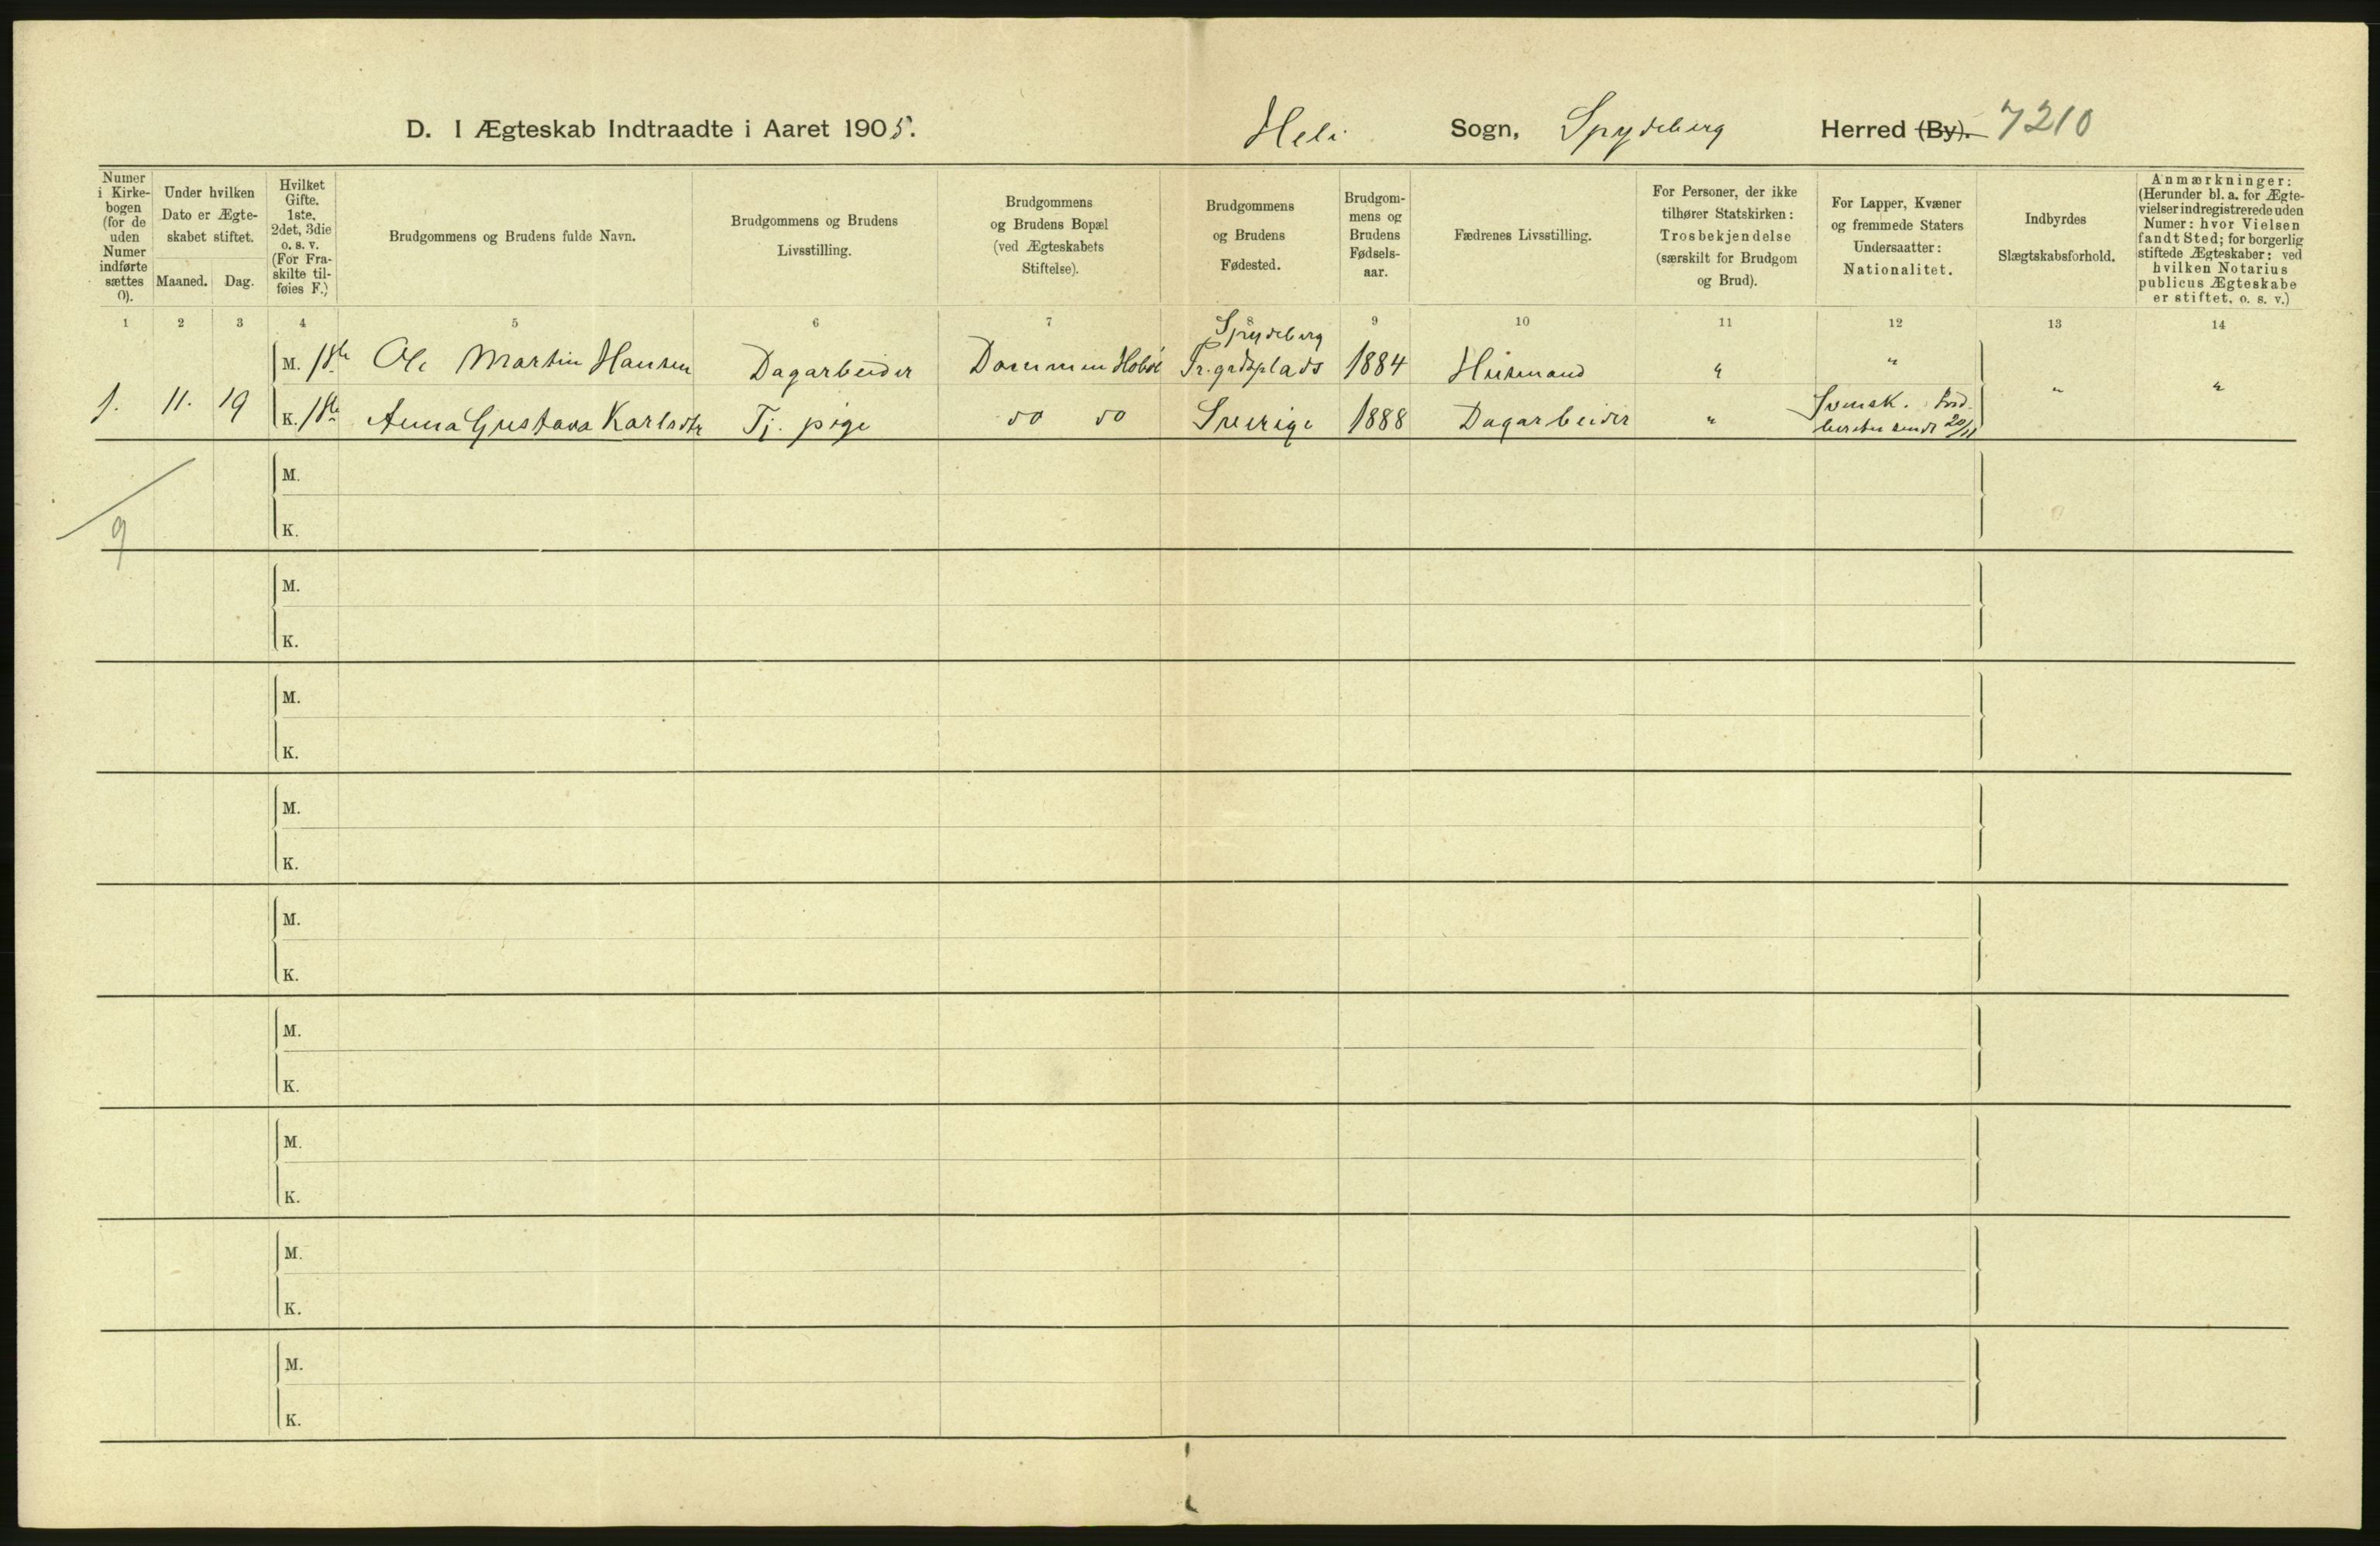 D. I Ægteskab Indtraadte i Aaret 1905. Heli Sogn, Spydeberg Herred (By). 7210
Numer i Kirkebogen (for de uden Numer indførte sættes 0).
Under hvilken Dato er Ægteskabet stiftet.
Maaned. Dag.
Hvilket Gifte. 1ste, 2det, 3die o. s. v. (For Fraskilte tilføies F.)
Brudgommens og Brudens fulde Navn.
Brudgommens og Brudens Livsstilling.
Brudgommens og Brudens Bopæl (ved Ægteskabets Stiftelse).
Brudgommens og Brudens Fødested.
Brudgommens og Brudens Fødselsaar.
Fædrenes Livsstilling.
For Personer, der ikke tilhører Statskirken: Trosbekjendelse (særskilt for Brudgom og Brud).
For Lapper, Kvæner og fremmede Staters Undersaatter: Nationalitet.
Indbyrdes Slægtskabsforhold.
Anmærkninger: (Herunder bl. a. for Ægtevielser indregistrerede uden Numer: hvor Vielsen fandt Sted; for borgerlig stiftede Ægteskaber: ved hvilken Notarius publicus Ægteskabe er stiftet, o. s. v.)
1 2 3 4 5 6 7 8 9 10 11 12 13 14
Spydeberg
M. 1ste Ole Martin Hansen Dagarbeider Hobøl 1884 Husmand " "
1. 11. 19 " "
K. 1ste Anna Gustava Karlsdtr Tj. pige do do Sverige 1888 Dagarbeider " Svensk.
sendt 20/11
M.
K.
9
M.
K.
M.
K.
M.
K.
M.
K.
M.
K.
M.
K.
M.
K.
M.
K.